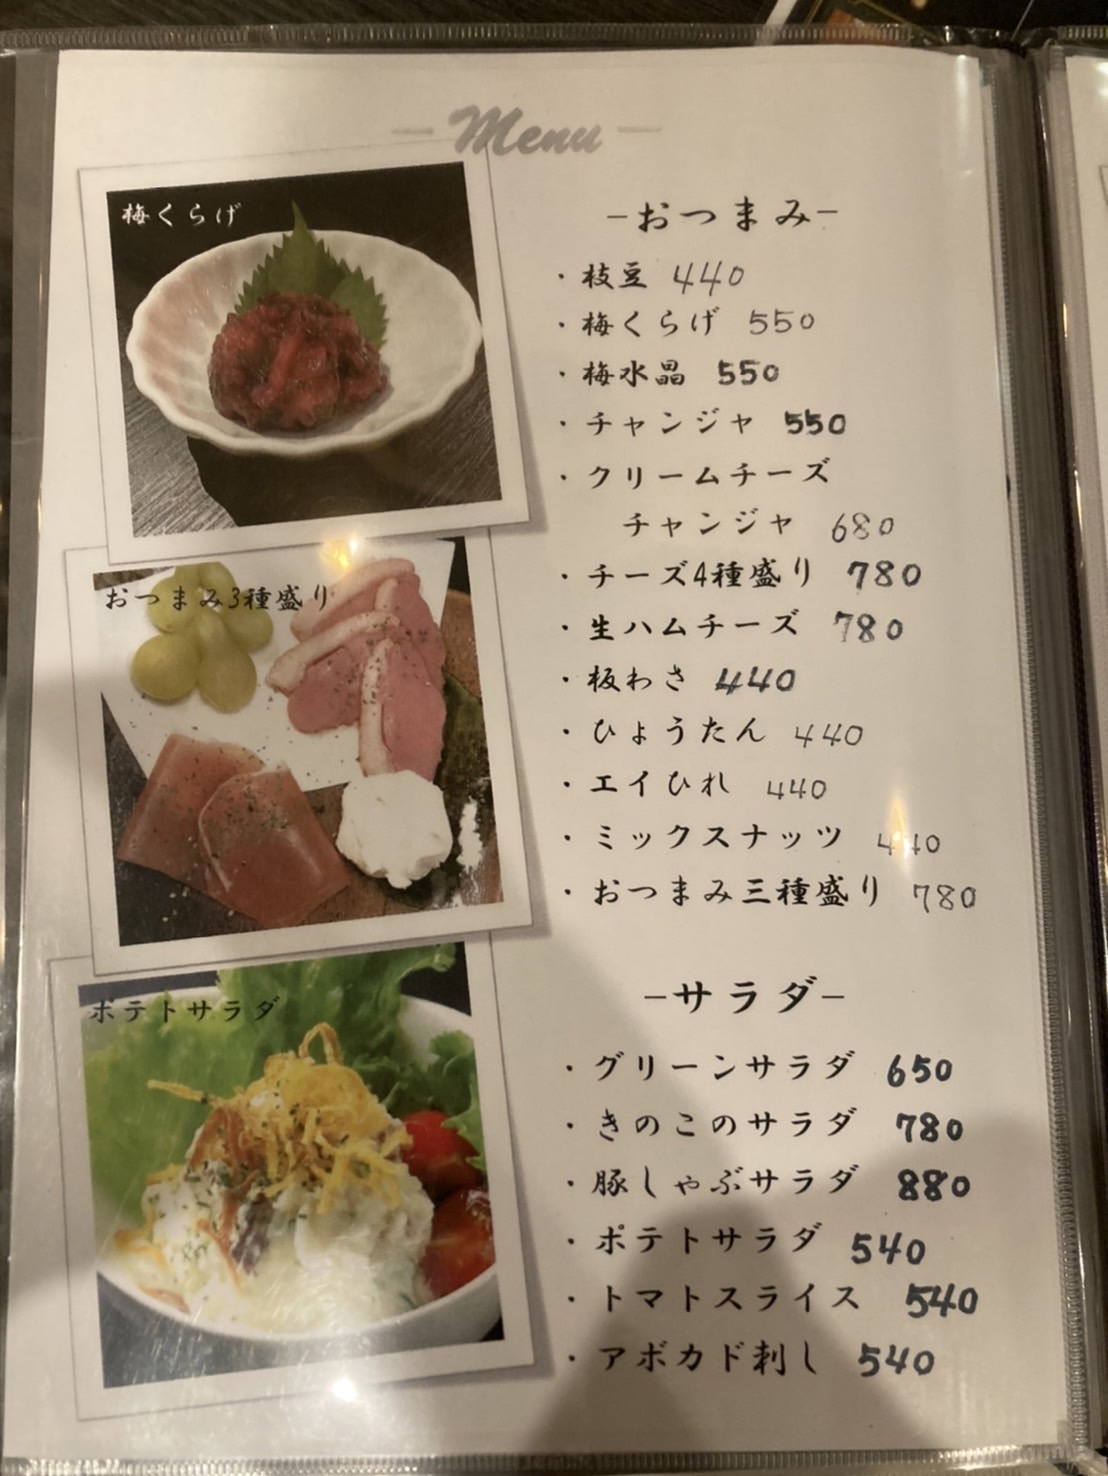 Menu
梅くらげ
おつまみ3種盛り
ポテトサラダ
-おつまみ-
・枝豆 440
・梅くらげ 550
・梅水晶 550
・チャンジャ 550
・クリームチーズ
チャンジャ 680
・チーズ4種盛り 780
・生ハムチーズ 780
・板わさ 440
・ひょうたん 440
・エイひれ 440
・ミックスナッツ 440
・おつまみ三種盛り 780
-サラダ-
・グリーンサラダ 650
・きのこのサラダ 780
・豚しゃぶサラダ 880
・ポテトサラダ 540
・トマトスライス 540
・アボカド刺し 540